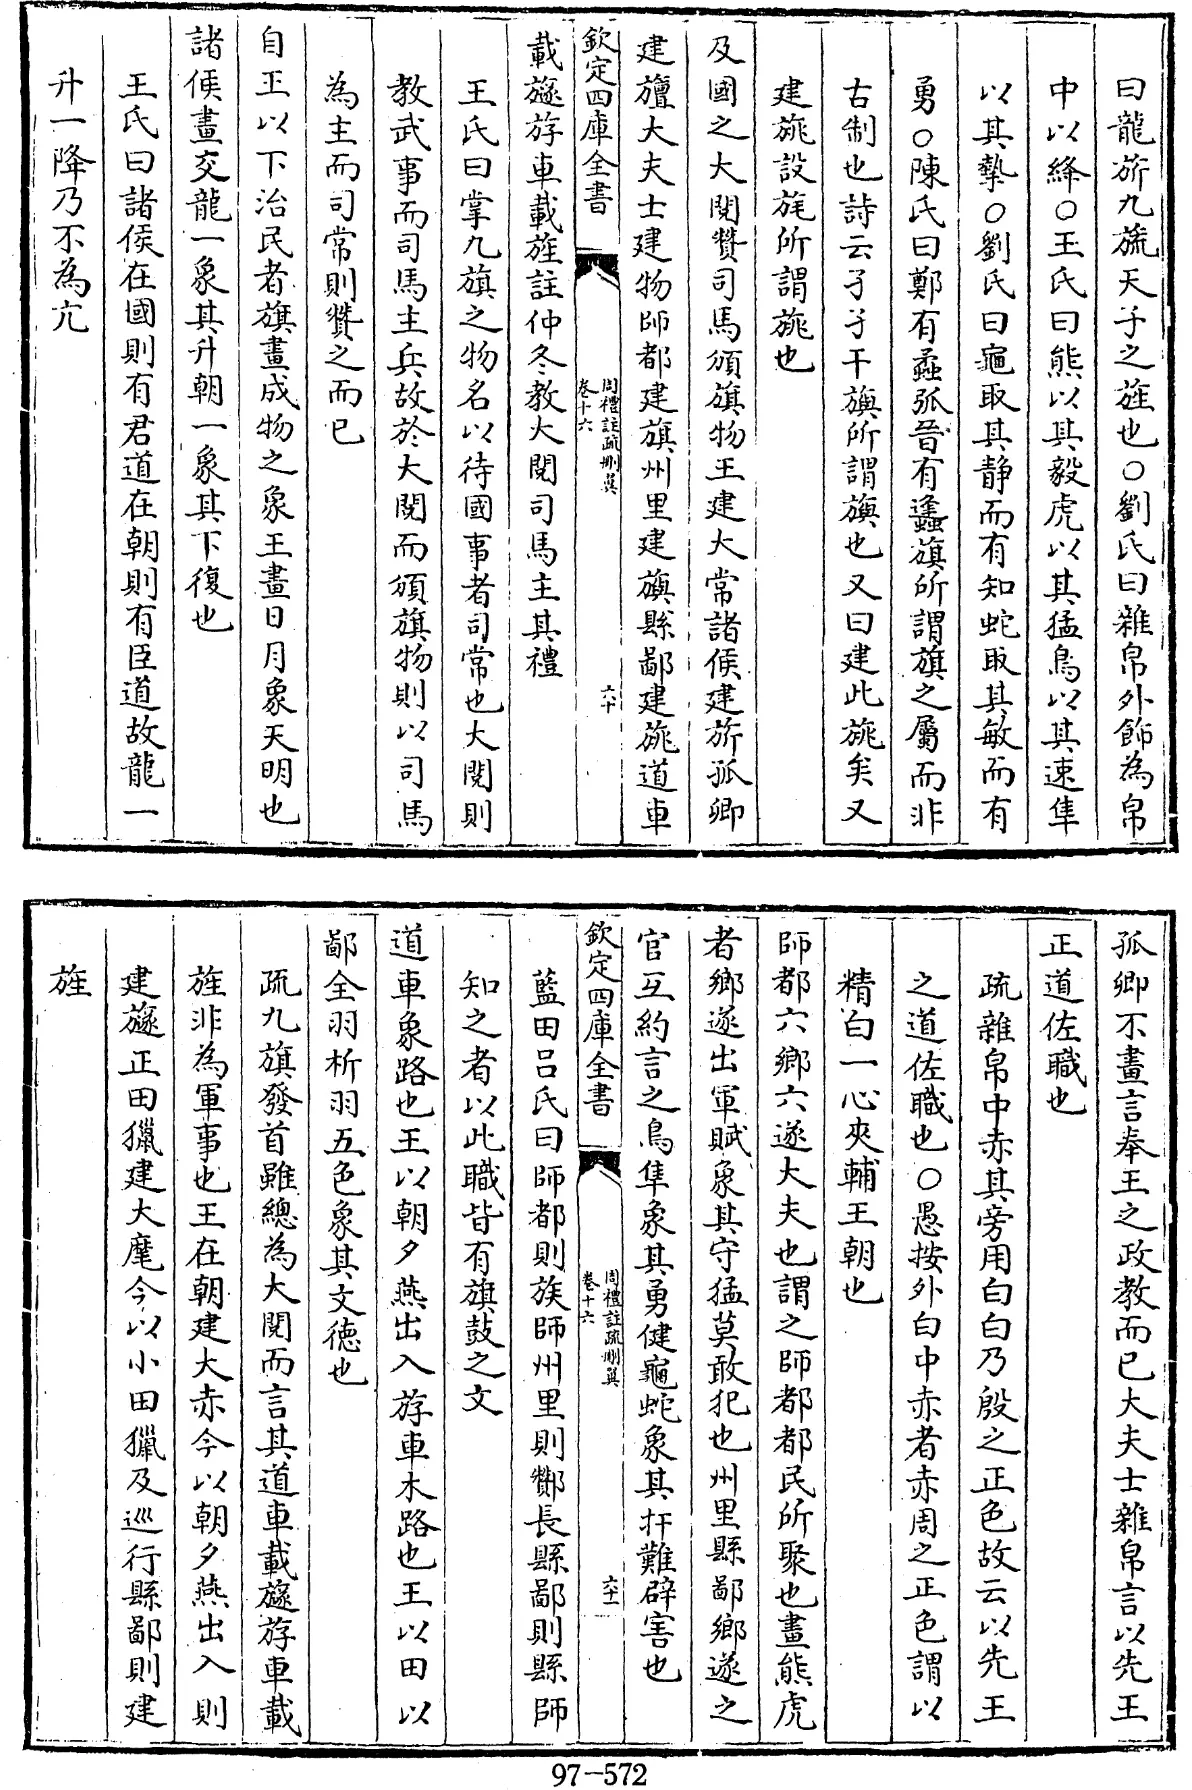 曰龍旂九旒天子之旌也○劉氏曰雜帛外飾為帛
中以絳○王氏曰熊以其毅虎以其猛鳥以其速隼
以其摯○劉氏曰龜取其静而有知蛇取其敏而有
勇○陳氏曰鄭有蝥弧晉有蝥旗所謂旗之屬而非
古制也詩云孑孑干旟所謂旟也又曰建此旐矣又
建旐設旄所謂旐也
及國之大閱贊司馬頒旗物王建大常諸侯建旂孤卿
建旜大夫士建物師都建旗州里建旟縣鄙建旐道車
欽定四庫全書
周禮註疏刪翼
卷十六
六十
載旞斿車載旌註仲冬教大閱司馬主其禮
王氏曰掌九旗之物名以待國事者司常也大閱則
教武事而司馬主兵故於大閱而頒旗物則以司馬
為主而司常則贊之而已
自王以下治民者旗畫成物之象王畫日月象天明也
諸侯畫交龍一象其升朝一象其下復也
王氏曰諸侯在國則有君道在朝則有臣道故龍一
升一降乃不為亢
孤卿不畫言奉王之政教而已大夫士雜帛言以先王
正道佐職也
疏雜帛中赤其旁用白白乃殷之正色故云以先王
之道佐職也○愚按外白中赤者赤周之正色謂以
精白一心夾輔王朝也
師都六鄉六遂大夫也謂之師都都民所聚也畫熊虎
者鄉遂出軍賦象其守猛莫敢犯也州里縣鄙鄉遂之
官互約言之鳥隼象其勇健龜蛇象其扞難辟害也
欽定四庫全書
周禮註疏刪翼
卷十六
六十一
藍田呂氏曰師都則族師州里則酇長縣鄙則縣師
知之者以此職皆有旗鼓之文
道車象路也王以朝夕燕出入斿車木路也王以田以
鄙全羽析羽五色象其文德也
疏九旗發首雖總為大閱而言其道車載旞斿車載
旌非為軍事也王在朝建大赤今以朝夕燕出入則
建旞正田獵建大麾今以小田獵及巡行縣鄙則建
旌
97-572